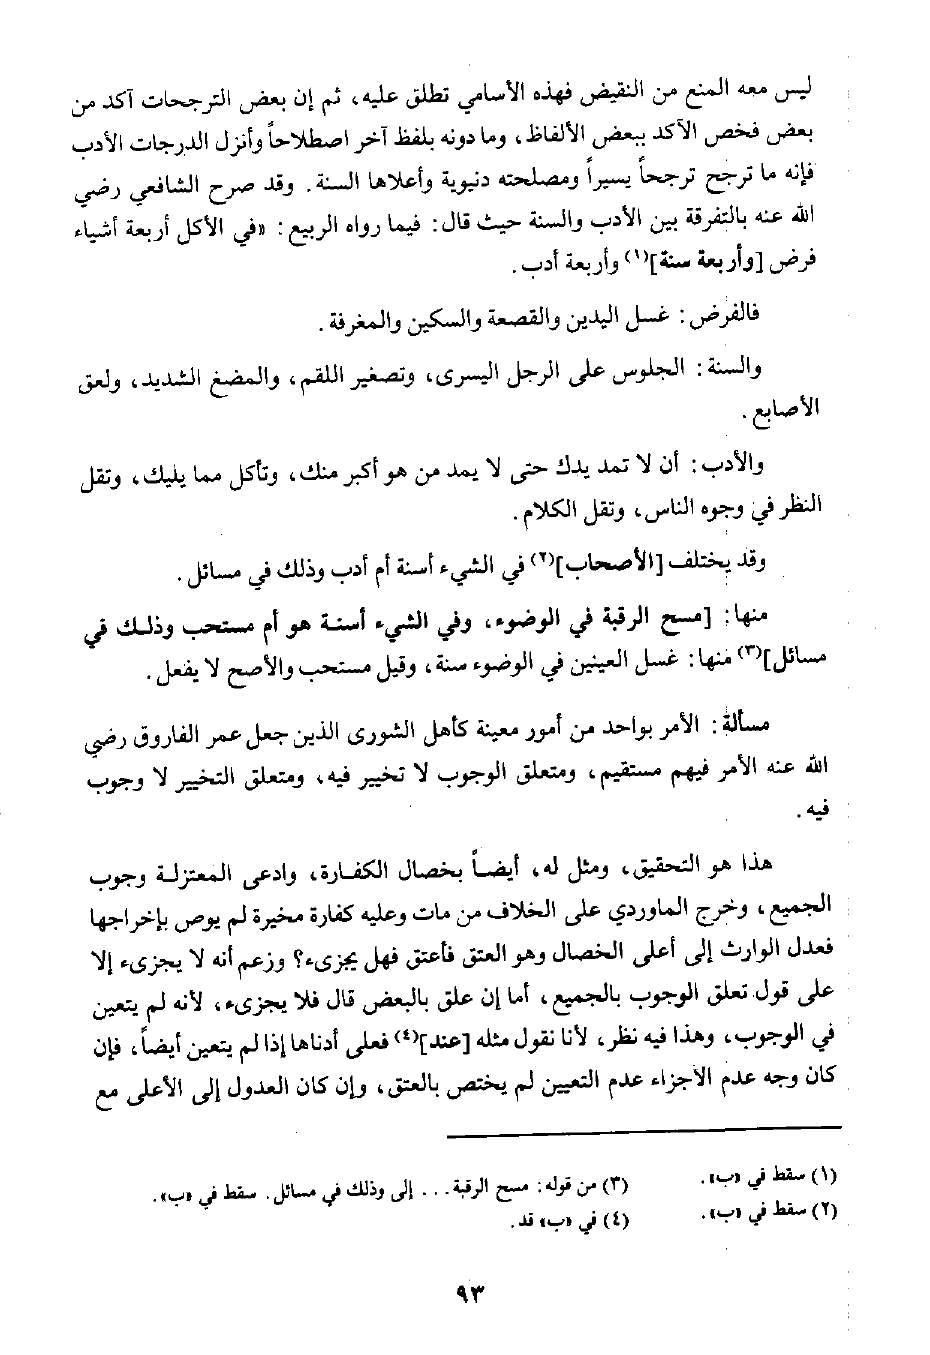 ليس معه المنع من النقيض فهذه الأسامي تطلق عليه، ثم إن بعض الترجحات آكد من
بعض فخص الآكد ببعض الألفاظ، وما دونه بلفظ آخر اصطلاحاً وأنزل الدرجات الأدب
فإنه ما ترجح ترجحاً يسيراً ومصلحته دنيوية وأعلاها السنة. وقد صرح الشافعي رضي
الله عنه بالتفرقة بين الأدب والسنة حيث قال: فيما رواه الربيع: «في الأكل أربعة أشياء
فرض [وأربعة سنة](١) وأربعة أدب.
فالفرض: غسل اليدين والقصعة والسكين والمغرفة.
والسنة: الجلوس على الرجل اليسرى، وتصغير اللقم، والمضغ الشديد، ولعق
الأصابع.
والأدب: أن لا تمد يدك حتى لا يمد من هو أكبر منك، وتأكل مما يليك، وتقل
النظر في وجوه الناس، وتقل الكلام.
وقد يختلف [الأصحاب](٢) في الشيء أسنة أم أدب وذلك في مسائل.
منها: [مسح الرقبة في الوضوء، وفي الشيء أسنة هو أم مستحب وذلك في
مسائل](٣) منها: غسل العينين في الوضوء سنة، وقيل مستحب والأصح لا يفعل.
مسألة: الأمر بواحد من أمور معينة كأهل الشورى الذين جعل عمر الفاروق رضي
الله عنه الأمر فيهم مستقيم، ومتعلق الوجوب لا تخيير فيه، ومتعلق التخيير لا وجوب
فيه.
هذا هو التحقيق، ومثل له، أيضاً بخصال الكفارة، وادعى المعتزلة وجوب
الجميع، وخرج الماوردي على الخلاف من مات وعليه كفارة مخيرة لم يوص بإخراجها
فعدل الوارث إلى أعلى الخصال وهو العتق فأعتق فهل يجزىء؟ وزعم أنه لا يجزىء إلا
على قول تعلق الوجوب بالجميع، أما إن علق بالبعض قال فلا يجزىء، لأنه لم يتعين
في الوجوب، وهذا فيه نظر، لأنا نقول مثله [عند](٤) فعلى أدناها إذا لم يتعين أيضاً، فإن
كان وجه عدم الأجزاء عدم التعيين لم يختص بالعتق، وإن كان العدول إلى الأعلى مع
(١) سقط في «ب».
(٢) سقط في «ب».
(٣) من قوله: مسح الرقبة... إلى وذلك في مسائل. سقط في «ب».
(٤) في «ب» قد.
٩٣